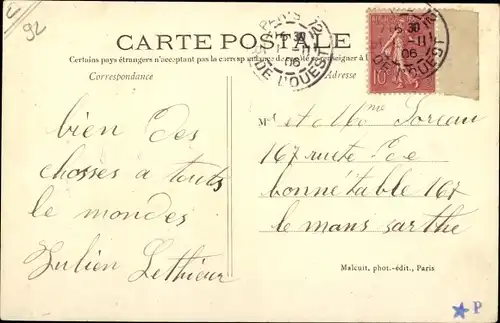 92
CARTE POSTALE
Certains pays étrangers n'acceptant pas la correspondance
Correspondance
Adresse
PARIS
30
11
06
DE L'OUEST
10
30
11
06
DE L'OUEST
bien des
chosses a touts
le mondes
Julien Lethieur
M^r et M^me Poreau
167 rute de
bonnétable 167
le mans sarthe
Malcuit, phot.-édit., Paris
P